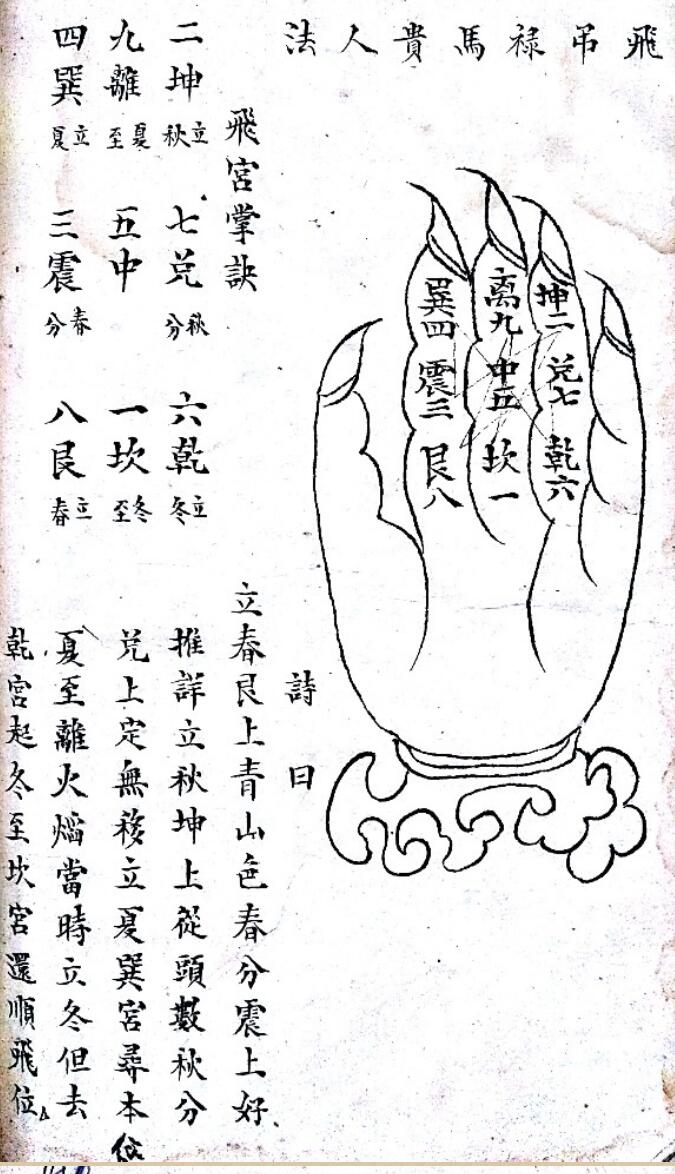 飛吊禄馬貴人法
坤二 兌七 乾六
离九 中五 坎一
巽四 震三 艮八
飛宮掌訣
二坤立秋 七兌秋分 六乾立冬
九離夏至 五中 一坎冬至
四巽立夏 三震春分 八艮立春
詩曰
立春艮上青山色春分震上好
推詳立秋坤上從頭數秋分
兌上定無移立夏巽宮尋本
夏至離火焰當時立冬但去
乾宮起冬至坎宮還順飛位